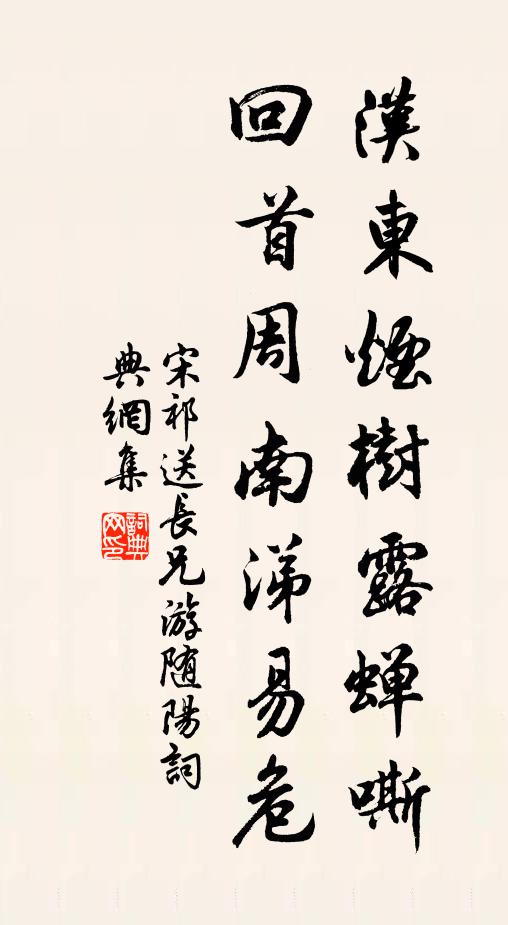 漢東煙樹露蝉嘶
回首周南涕易危
宋祁送長兄游随陽詞
典網集
詞典
网印